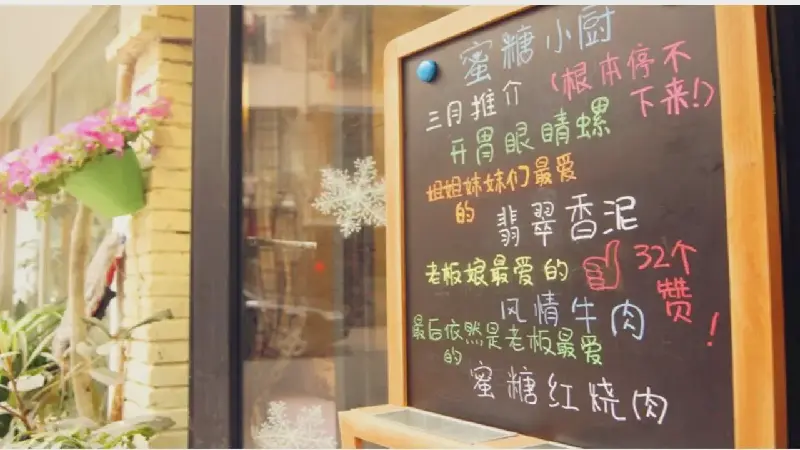 蜜糖小厨
三月推介
(根本停不
下来!)
开胃眼睛螺
姐姐妹妹们最爱
的
翡翠香泥
老板娘最爱的
32个
赞!
风情牛肉
最后依然是老板最爱
的
蜜糖红烧肉